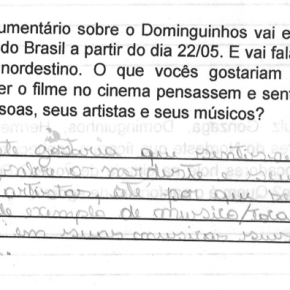 umentário sobre o Dominguinhos vai e
do Brasil a partir do dia 22/05. E vai fal
nordestino. O que vocês gostariam
er o filme no cinema pensassem e sen
soas, seus artistas e seus músicos?
gostaria que sentiss
nordeste
artistas, até por que s
de exemplo de musico/toca
em suas musicas suas